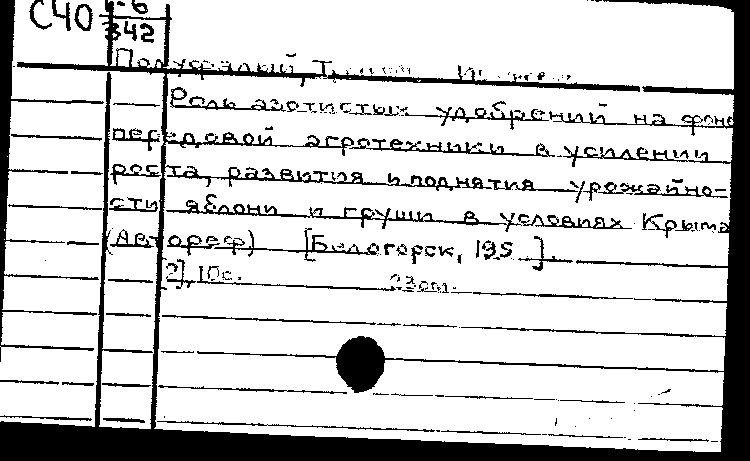 С40 1-6
342
Полуфалый,
Роль азотистых удобрений на фоне
передовой агротехники в усилении
роста, развития и поднятия урожайно-
сти яблони и груши в условиях Крыма
(Автореф) [Белогорск, 195 ].
[2], 10с. 23см.